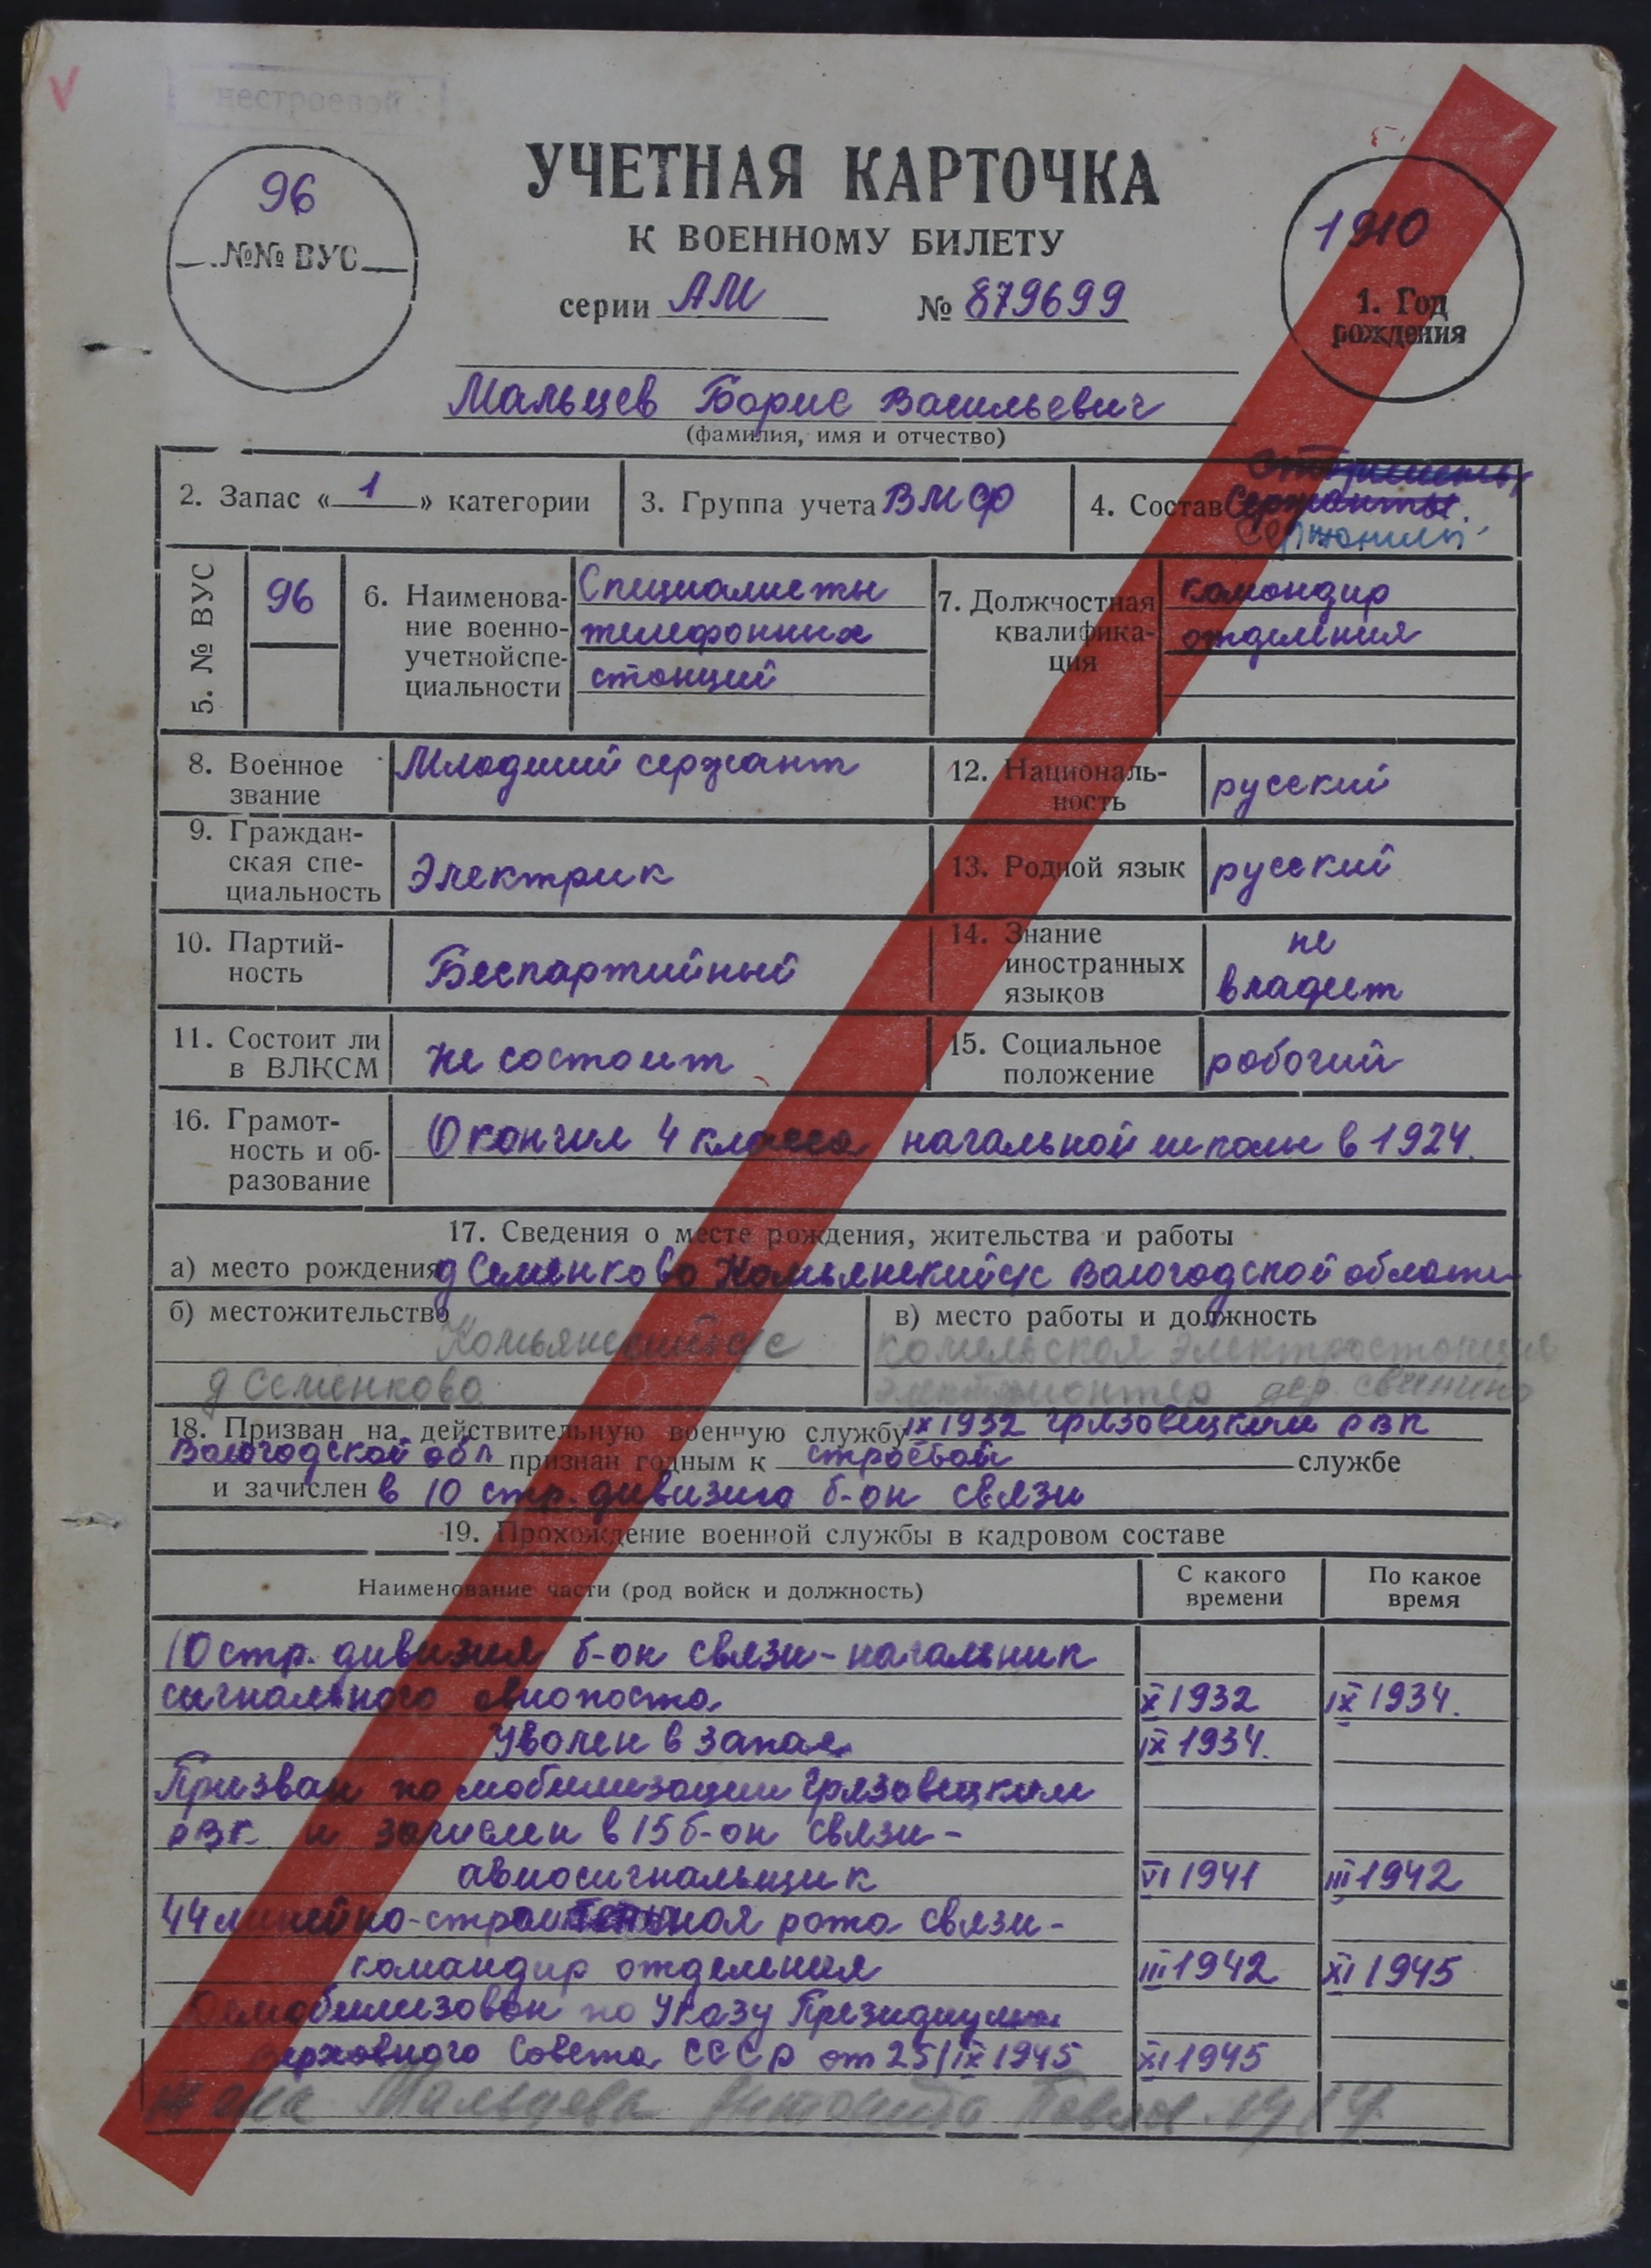 нестроевой
96
№№ ВУС
УЧЕТНАЯ КАРТОЧКА
К ВОЕННОМУ БИЛЕТУ
серии АМ № 879699
1910
1. Год
рождения
Мальцев Борис Васильевич
(фамилия, имя и отчество)
2. Запас « 1 » категории
3. Группа учета ВМФ
4. Состав Сержанты.
Сержанты
5. № ВУС
96
6. Наименова-
ние военно-
учетнойспе-
циальности
Специалисты
телефонных
станций
7. Должностная
квалифика-
ция
командир
отделения
8. Военное
звание
Младший сержант
12. Националь-
ность
русский
9. Граждан-
ская спе-
циальность
Электрик
13. Родной язык
русский
10. Партий-
ность
Беспартийный
14. Знание
иностранных
языков
не
владеет
11. Состоит ли
в ВЛКСМ
не состоит
15. Социальное
положение
рабочий
16. Грамот-
ность и об-
разование
Окончил 4 класса начальной школы в 1924.
17. Сведения о месте рождения, жительства и работы
а) место рождения д Семенково Комьянский с/с Вологодской области
б) местожительство
Комьянский с/с
д Семенково
в) место работы и должность
Комельская электростанция
электромонтер дер. Свинино
18. Призван на действительную военную службу IX 1932 Грязовецким РВК
Вологодской обл признан годным к строевой службе
и зачислен в 10 стр. дивизию б-он связи
19. Прохождение военной службы в кадровом составе
Наименование части (род войск и должность)
С какого
времени
По какое
время
10 стр. дивизия б-он связи - начальник
сигнального авиопоста X 1932 IX 1934.
Уволен в запас IX 1934.
Призван по мобилизации Грязовецким
РВК и зачислен в 15 б-он связи -
авиосигнальщик VI 1941 III 1942
44 линейно-строительная рота связи -
командир отделения III 1942 XI 1945
Демобилизован по Указу Президиума
Верховного Совета СССР от 25/IX 1945 XI 1945
жена Мальцева Антонида Павлов. 1914